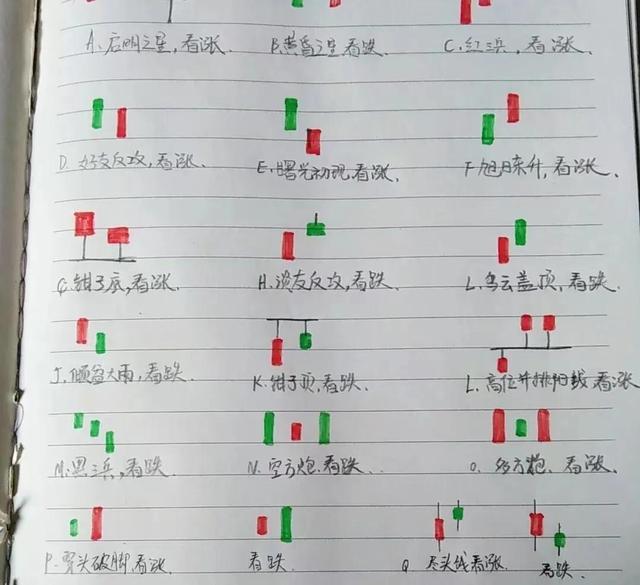 A. 启明之星,看涨.
B. 黄昏之星 看跌.
C. 红三兵,看涨.
D. 好友反攻,看涨.
E. 曙光初现,看涨.
F. 旭日东升,看涨.
G. 钳子底,看涨.
H. 淡友反攻,看跌.
L. 乌云盖顶,看跌.
J. 倾盆大雨,看跌.
K. 钳子顶,看跌.
L. 高位并排阳线 看涨
M. 黑三兵,看跌.
N. 空方炮,看跌..
O. 多方炮、看涨.
P. 穿头破脚,看涨.
看跌.
Q 尽头线看涨.
看跌.